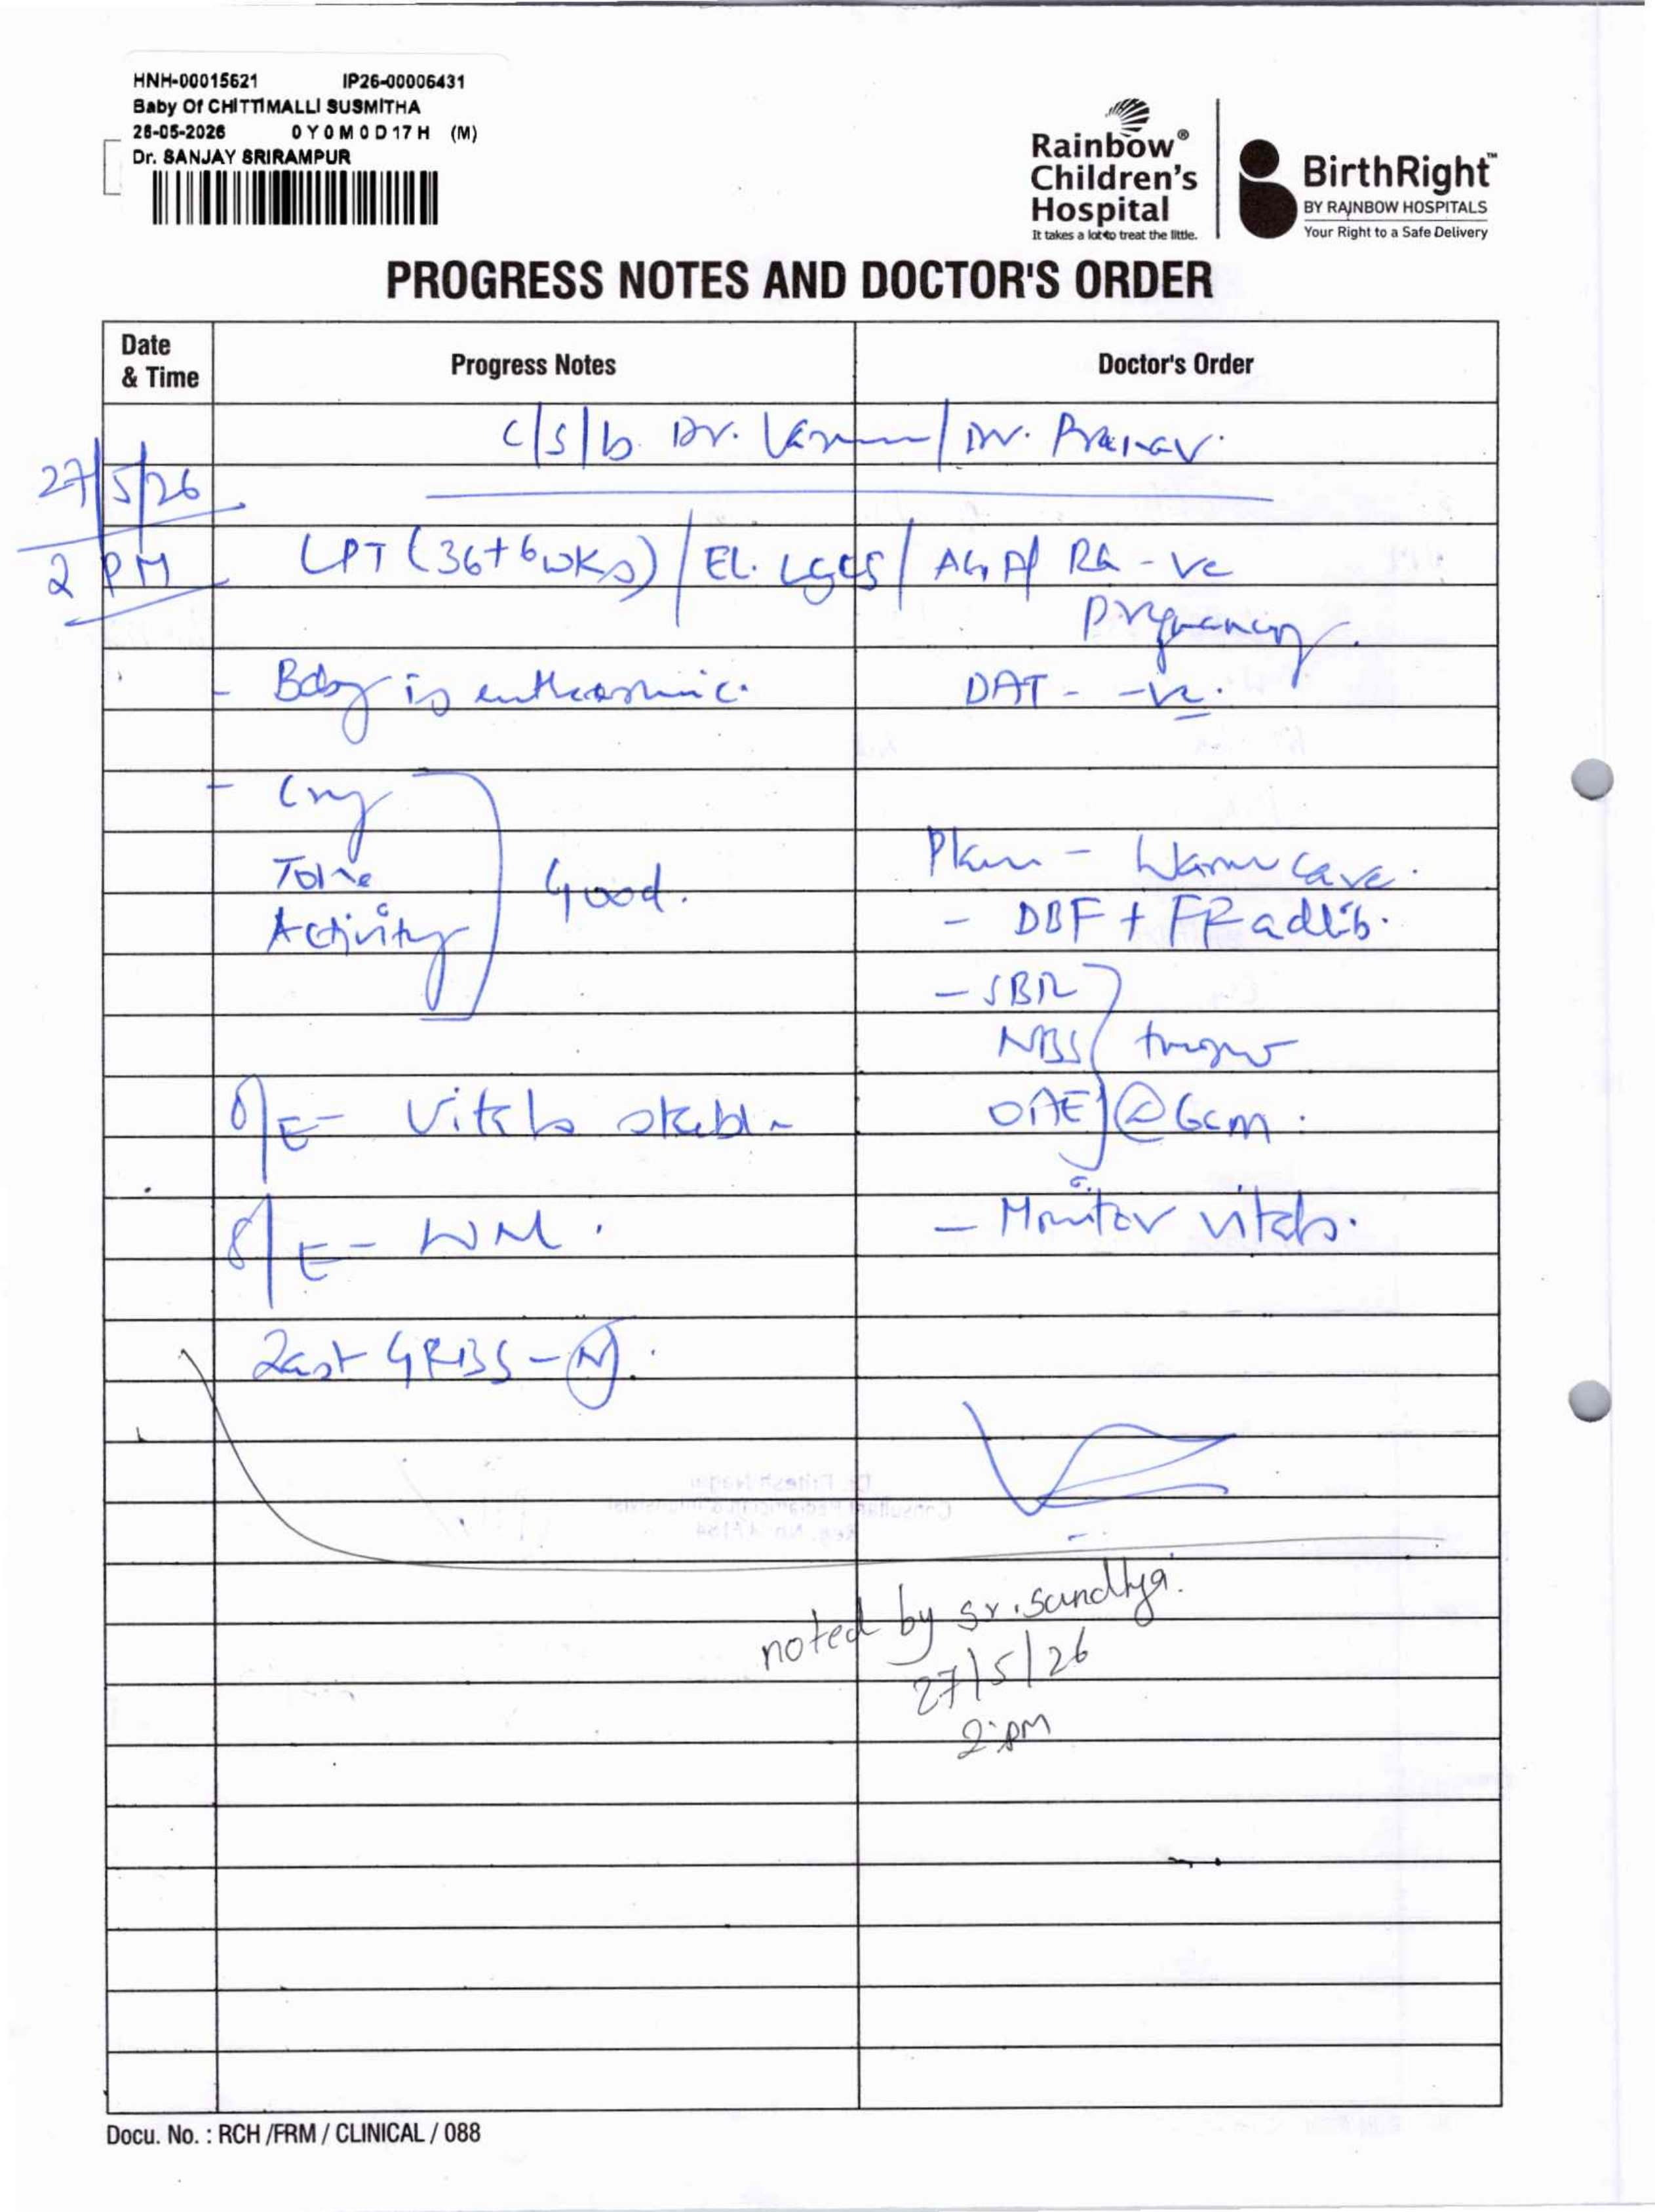 HNH-00015621 IP26-00006431
Baby Of CHITTIMALLI SUSMITHA
26-05-2026 0 Y 0 M 0 D 17 H (M)
Dr. SANJAY SRIRAMPUR
Rainbow®
Children's
Hospital
It takes a lot to treat the little.
BirthRight™
BY RAINBOW HOSPITALS
Your Right to a Safe Delivery
PROGRESS NOTES AND DOCTOR'S ORDER
Date & Time Progress Notes Doctor's Order
c/s/b Dr. / Dr. Pranav.
27/5/26
2 PM
LPT (36+6wks) / El. LSCS / AGA / Rh -ve
pregnancy.
- Baby is euthermic. DAT - -ve.
- Cry
Tone
Activity
Good.
Plan - Warm care.
- DBF + FF adlib.
- SBR
NBS
OAE
@ 6am.
O/E - Vitals stable
S/E - WNL.
- Monitor vitals.
Last GRBS - N.
noted by sr. sandhya.
27/5/26
2 pm
Docu. No. : RCH /FRM / CLINICAL / 088